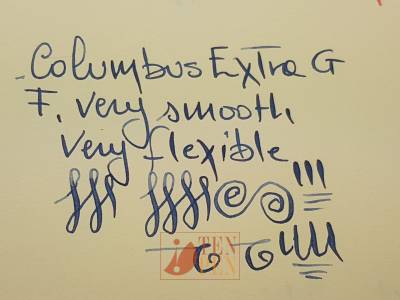 Columbus Extra G
F. very smooth,
very flexible
TEN
PEN